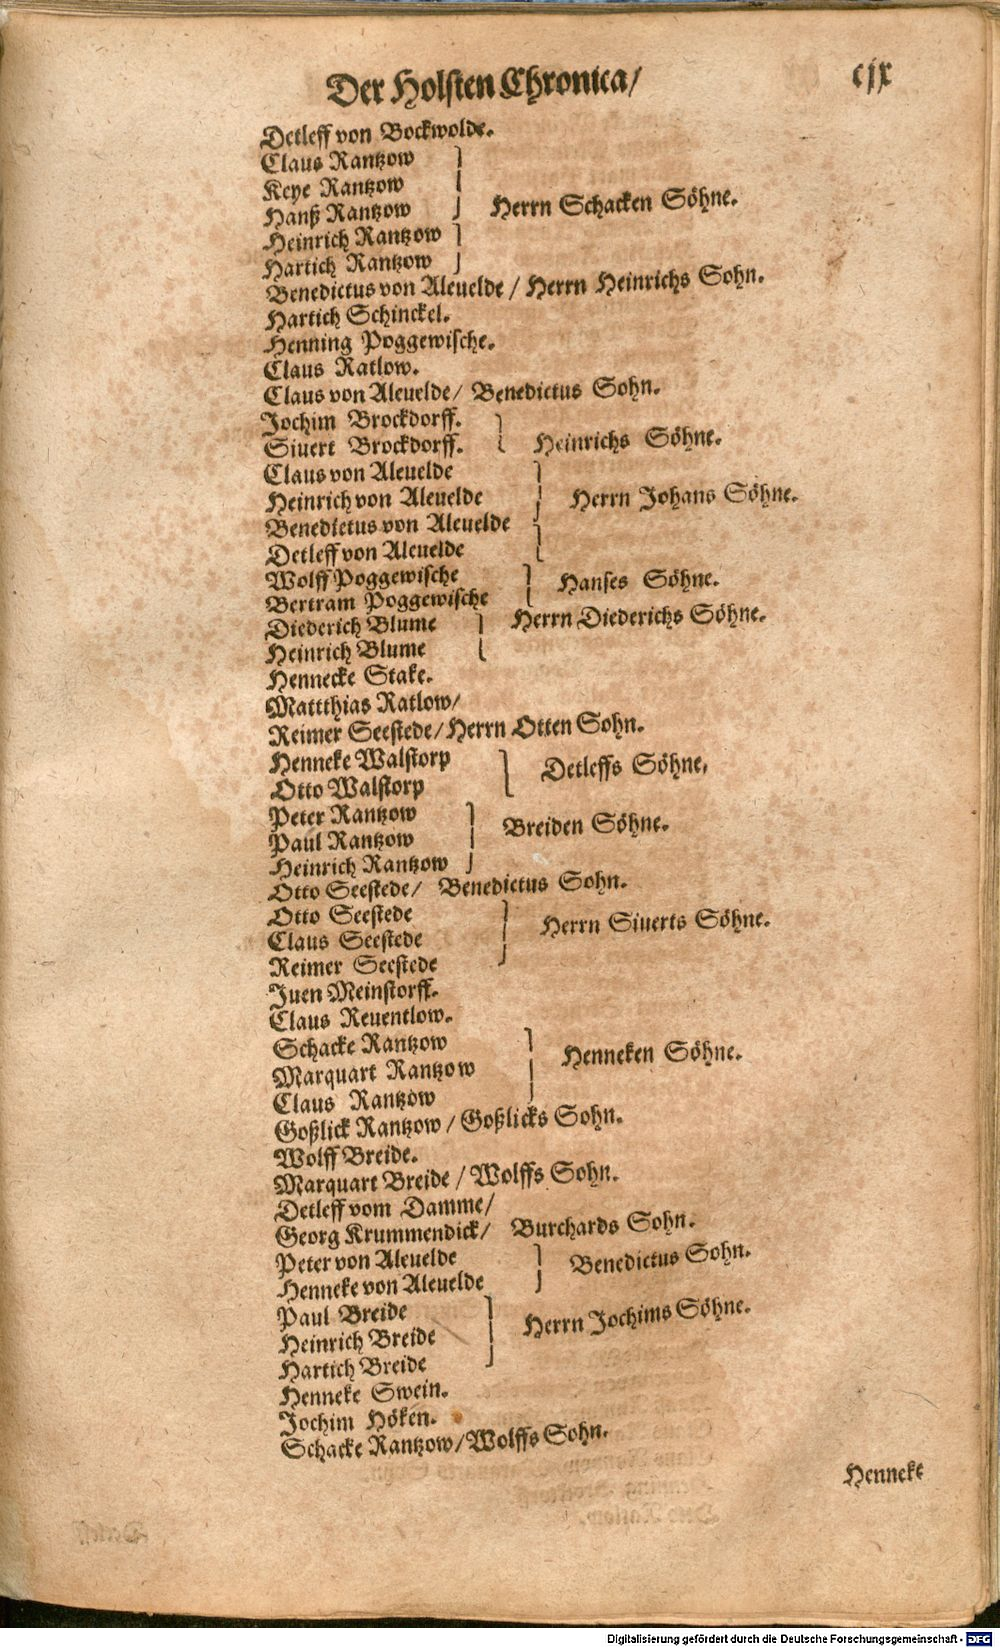 Der Holsten Chronica/ cjx
Detleff von Bockwolde.
Claus Rantzow
Keye Rantzow
Hanß Rantzow Herrn Schacken Söhne.
Heinrich Rantzow
Hartich Rantzow
Benedictus von Aleuelde / Herrn Heinrichs Sohn.
Hartich Schinckel.
Henning Poggewische.
Claus Ratlow.
Claus von Aleuelde/ Benedictus Sohn.
Jochim Brockdorff.
Siuert Brockdorff. Heinrichs Söhne.
Claus von Aleuelde
Heinrich von Aleuelde Herrn Johans Söhne.
Benedictus von Aleuelde
Detleff von Aleuelde
Wolff Poggewische Hanses Söhne.
Bertram Poggewische
Diederich Blume Herrn Diederichs Söhne.
Heinrich Blume
Hennecke Stake.
Mattthias Ratlow/
Reimer Seestede/Herrn Otten Sohn.
Henneke Walstorp Detleffs Söhne,
Otto Walstorp
Peter Rantzow
Paul Rantzow Breiden Söhne.
Heinrich Rantzow
Otto Seestede/ Benedictus Sohn.
Otto Seestede
Claus Seestede Herrn Siuerts Söhne.
Reimer Seestede
Juen Meinstorff.
Claus Reuentlow.
Schacke Rantzow Henneken Söhne.
Marquart Rantzow
Claus Rantzow
Goßlick Rantzow / Goßlicks Sohn.
Wolff Breide.
Marquart Breide / Wolffs Sohn.
Detleff vom Damme/
Georg Krummendick/ Burchards Sohn.
Peter von Aleuelde Benedictus Sohn.
Henneke von Aleuelde
Paul Breide
Heinrich Breide Herrn Jochims Söhne.
Hartich Breide
Henneke Swein.
Jochim Höken.
Schacke Rantzow/Wolffs Sohn.
Henneke
Digitalisierung gefördert durch die Deutsche Forschungsgemeinschaft - DFG